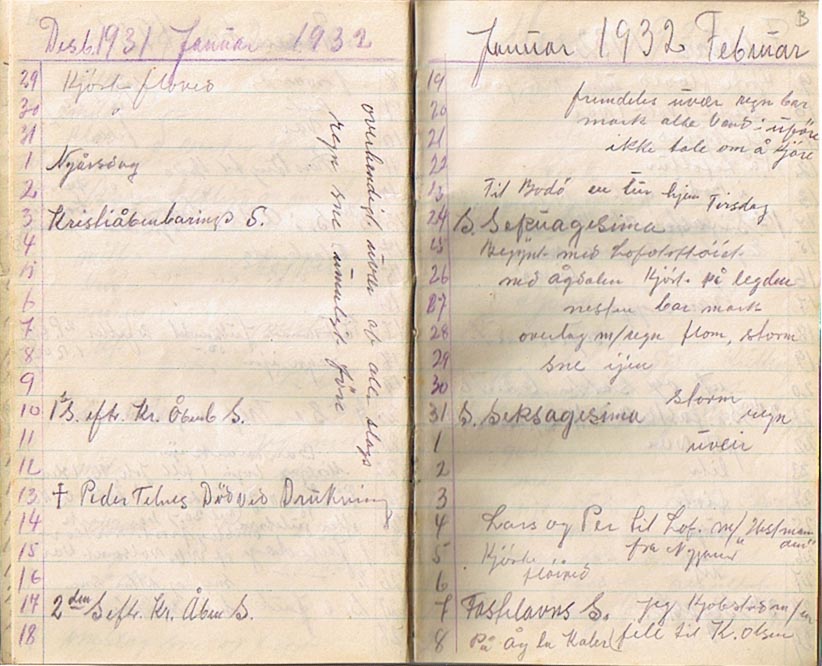 Desb. 1931 Januar 1932
29 Kjört floved
30 "
31
1 Nyårsdag
2
3 Kristiåbenbarings S.
4
5
6
7
8
9
10 1ste S. eftr. Kr. Åbenb S.
11
12
13 † Peder Telnes Död ved Drukning
14
15
16
17 2den S eftr. Kr. Åben S.
18
overhendigt uver ab alle slags
regn sne umuligt före
3
Januar 1932 Februar
19
20 fremdeles uver regn bar
21 mark alke uföre
22 ikke tale om å kjöre
23 Til Bodö en tur hjem Tirsdag
24 S. Sepuagesima
25 Begynt med
26 med kjört på legden
27 nesten bar mark
28 overlag m/regn flom, storm
29 sne ijen
30 storm
31 S. Seksagesima regn
1 uver
2
3
4 Lars og Per til Lof. m/
5 Kjörte fra
6 flöived
7 Fastelavns S. jeg
8 På Åg la fell til K. Olsen